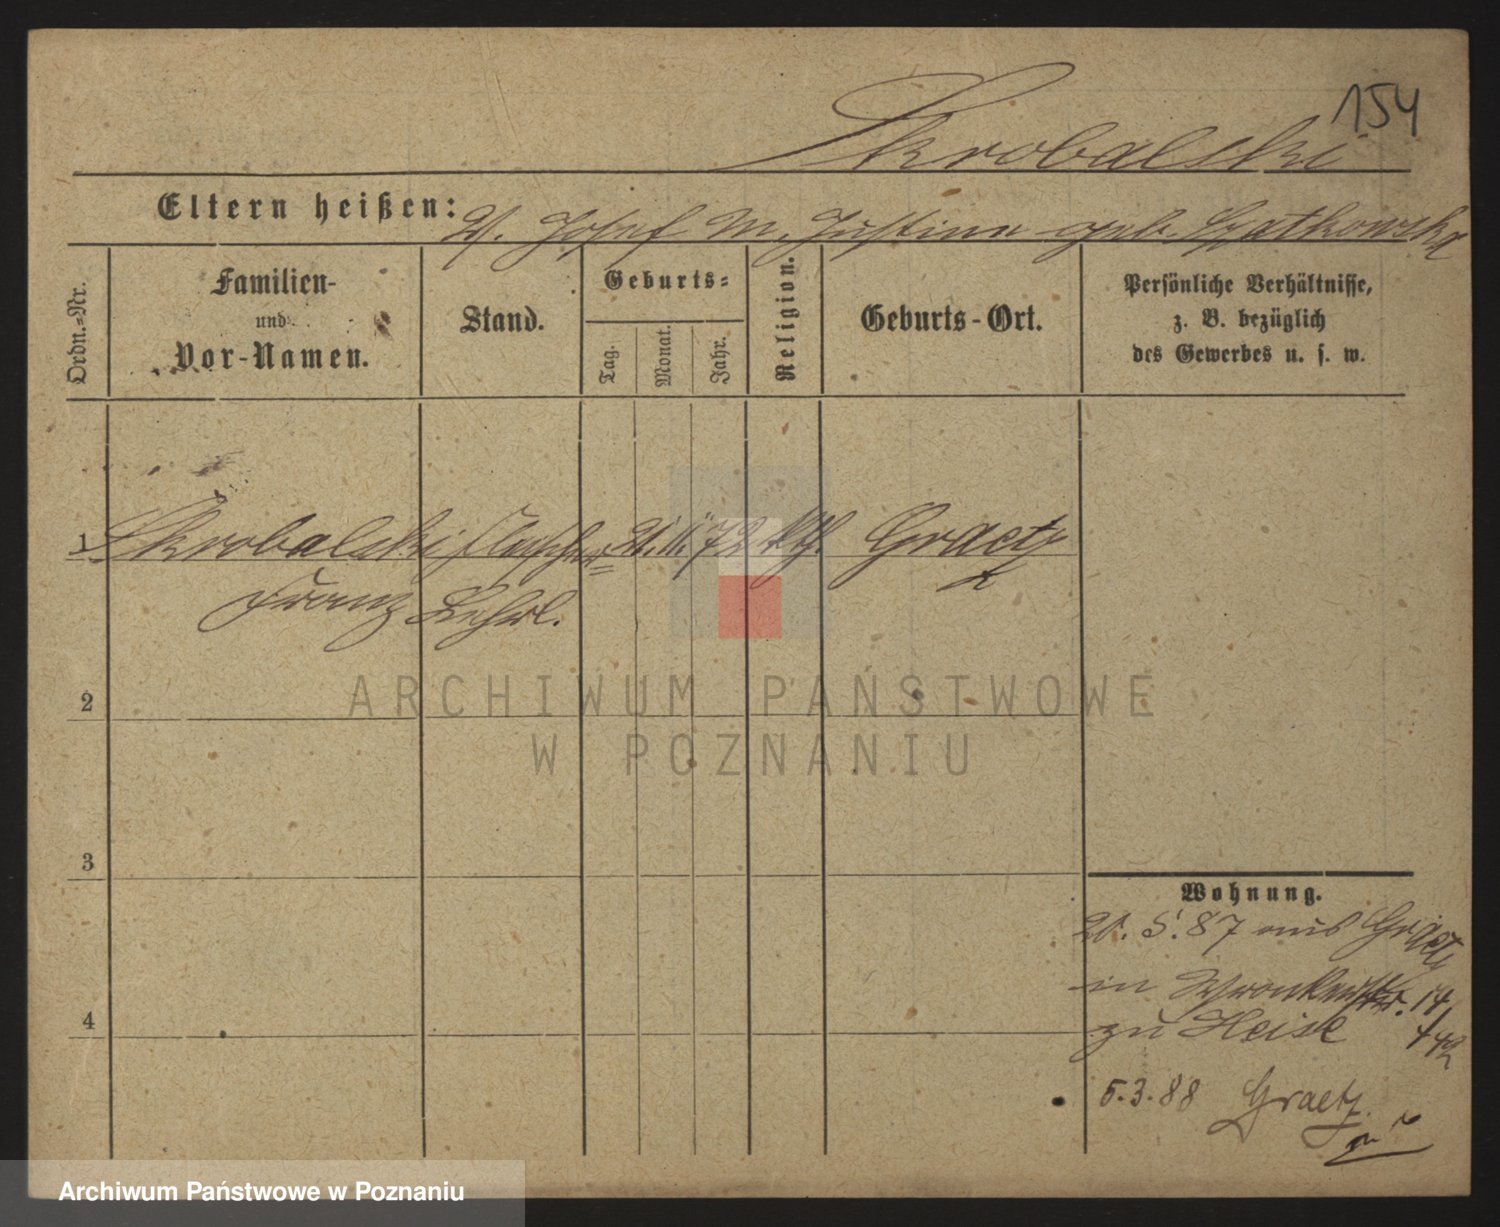 154
Skrobalski
Eltern heißen: V. Josef M. Justine geb. Szatkowska
Ordn.-Nr.
Familien-
und
Vor-Namen.
Stand.
Geburts-
Tag.
Monat.
Jahr.
Religion.
Geburts-Ort.
Persönliche Verhältnisse,
z. B. bezüglich
des Gewerbes u. s. w.
1 Skrobalski Fleischer 21. 11. 72 kth Graetz
Franz Lehrl.
2
3
4
Wohnung.
20. 5. 87 aus Graetz
in Wronkerstr. 14
zu Heise
5.3.88 Graetz
ARCHIWUM PAŃSTWOWE
W POZNANIU
Archiwum Państwowe w Poznaniu